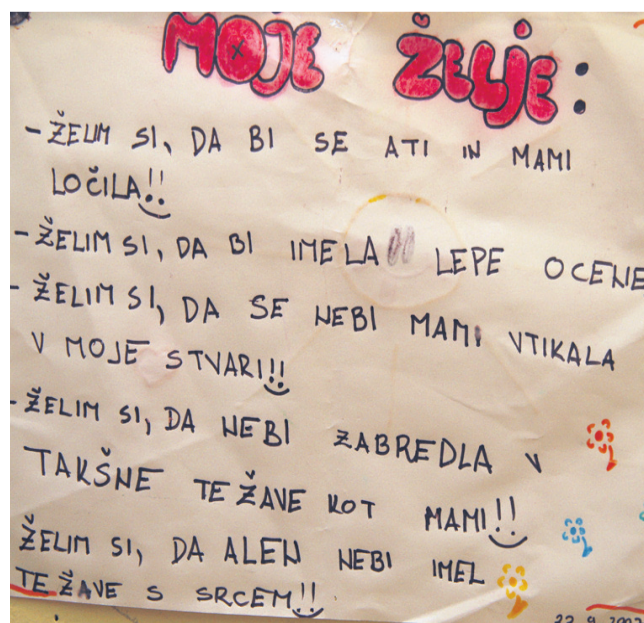 MOJE ŽELJE:
- ŽELIM SI, DA BI SE ATI IN MAMI
LOČILA!!
- ŽELIM SI, DA BI IMELA LEPE OCENE
- ŽELIM SI, DA SE NEBI MAMI VTIKALA
V MOJE STVARI!!
- ŽELIM SI, DA NEBI ZABREDLA V
TAKŠNE TEŽAVE KOT MAMI!!
ŽELIM SI, DA ALEN NEBI IMEL
TEŽAVE S SRCEM!!